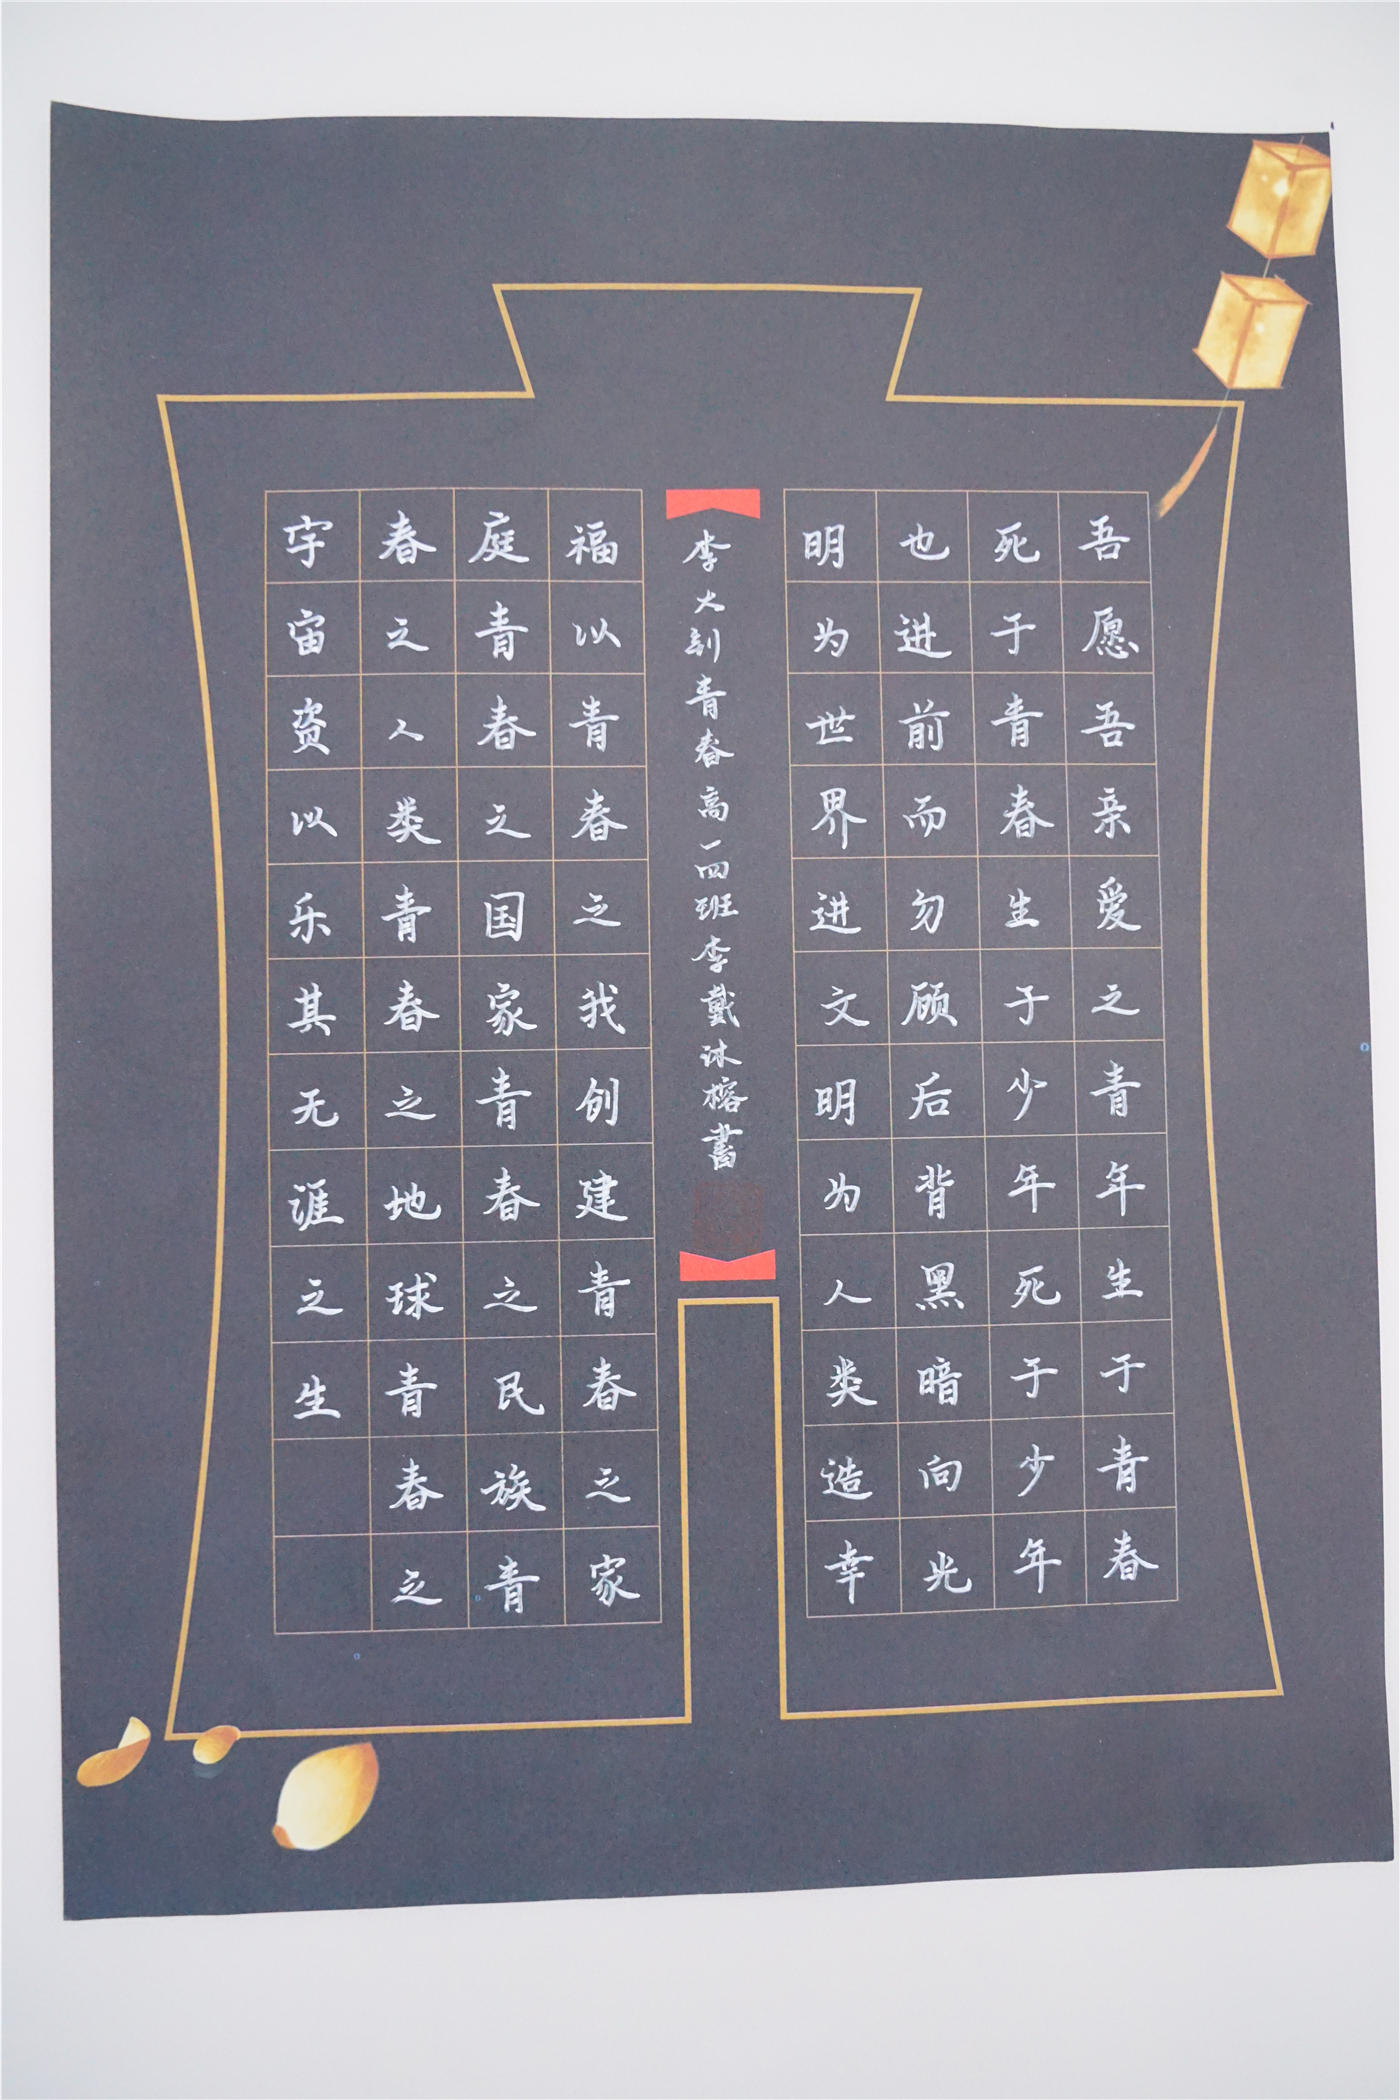 吾愿吾亲爱之青年生于青春
死于青春生于少年死于少年
也进前而勿顾后背黑暗向光
明为世界进文明为人类造幸
李大钊青春高一四班李戴沐榕書
福以青春之我创建青春之家
庭青春之国家青春之民族青
春之人类青春之地球青春之
宇宙资以乐其无涯之生